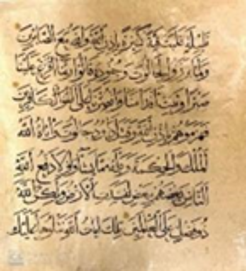 قليلة غلبت فئة كثيرة بإذن الله والله مع الصابرين
ولما برزوا لجالوت وجنوده قالوا ربنا أفرغ علينا
صبرا وثبت أقدامنا وانصرنا على القوم الكافرين
فهزموهم بإذن الله وقتل داود جالوت وآتاه الله
الملك والحكمة وعلمه مما يشاء ولولا دفع الله
الناس بعضهم ببعض لفسدت الأرض ولكن الله
ذو فضل على العالمين تلك آيات الله نتلوها عليك